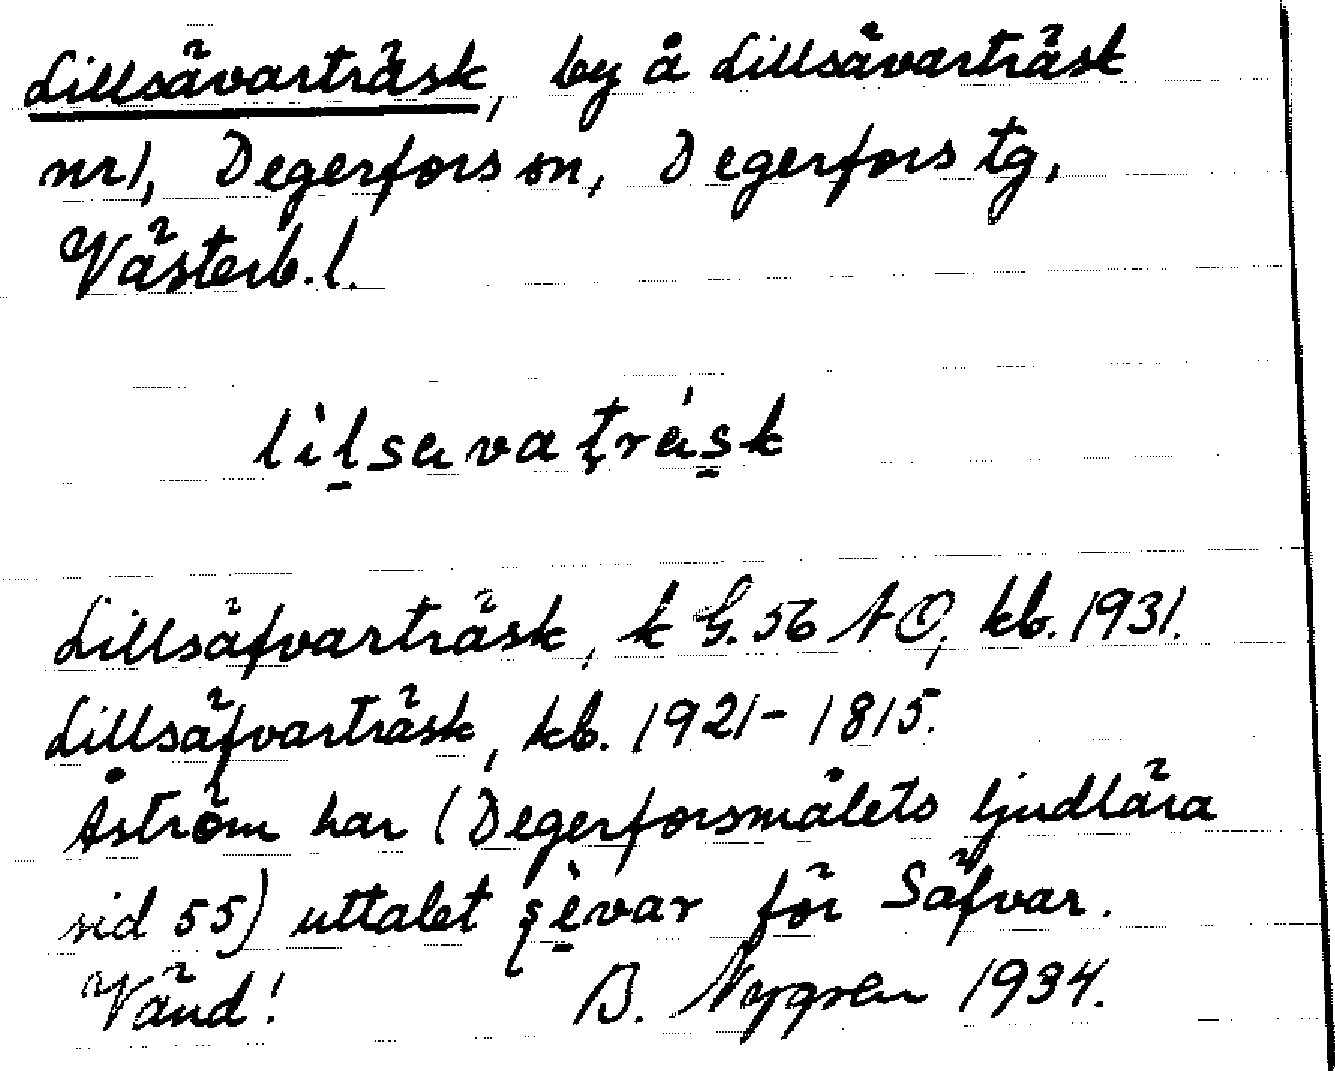 Lillsävarträsk, by å Lillsävarträsk
nr 1, Degerfors sn, Degerfors tg,
Västerb. l.
lìl̠savaţrás̠k
Lillsäfvarträsk, k G. 56 NO, kb. 1931.
Lillsäfvarträsk, kb. 1921-1815.
Åström har (Degerforsmålets ljudlära
sid 55) uttalet şè̠var för Säfvar.
Vänd! B. Nygren 1934.